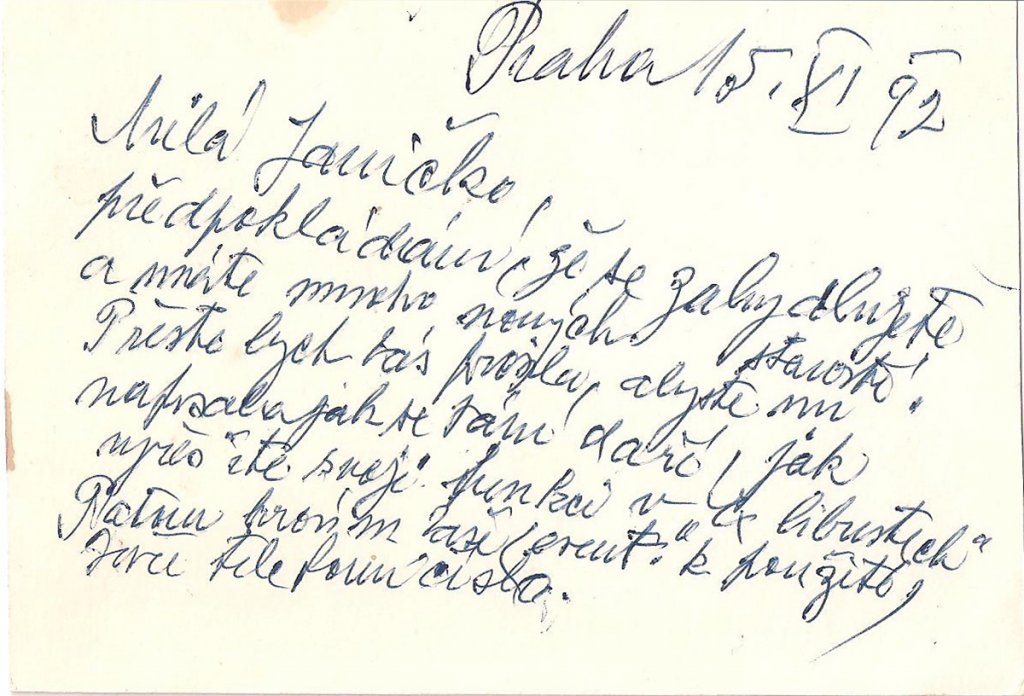 Praha 15. XI 92
Milá Janičko,
předpokládám, že se zabydlujete
a máte mnoho nových starostí!
Přesto bych Vás prosila, abyste mi
napsala jak se Vám daří, jak
vyřešíte svoji funkci v "Ex librstech"
Zatím prosím též (event. k použití)
telefonní čísla.